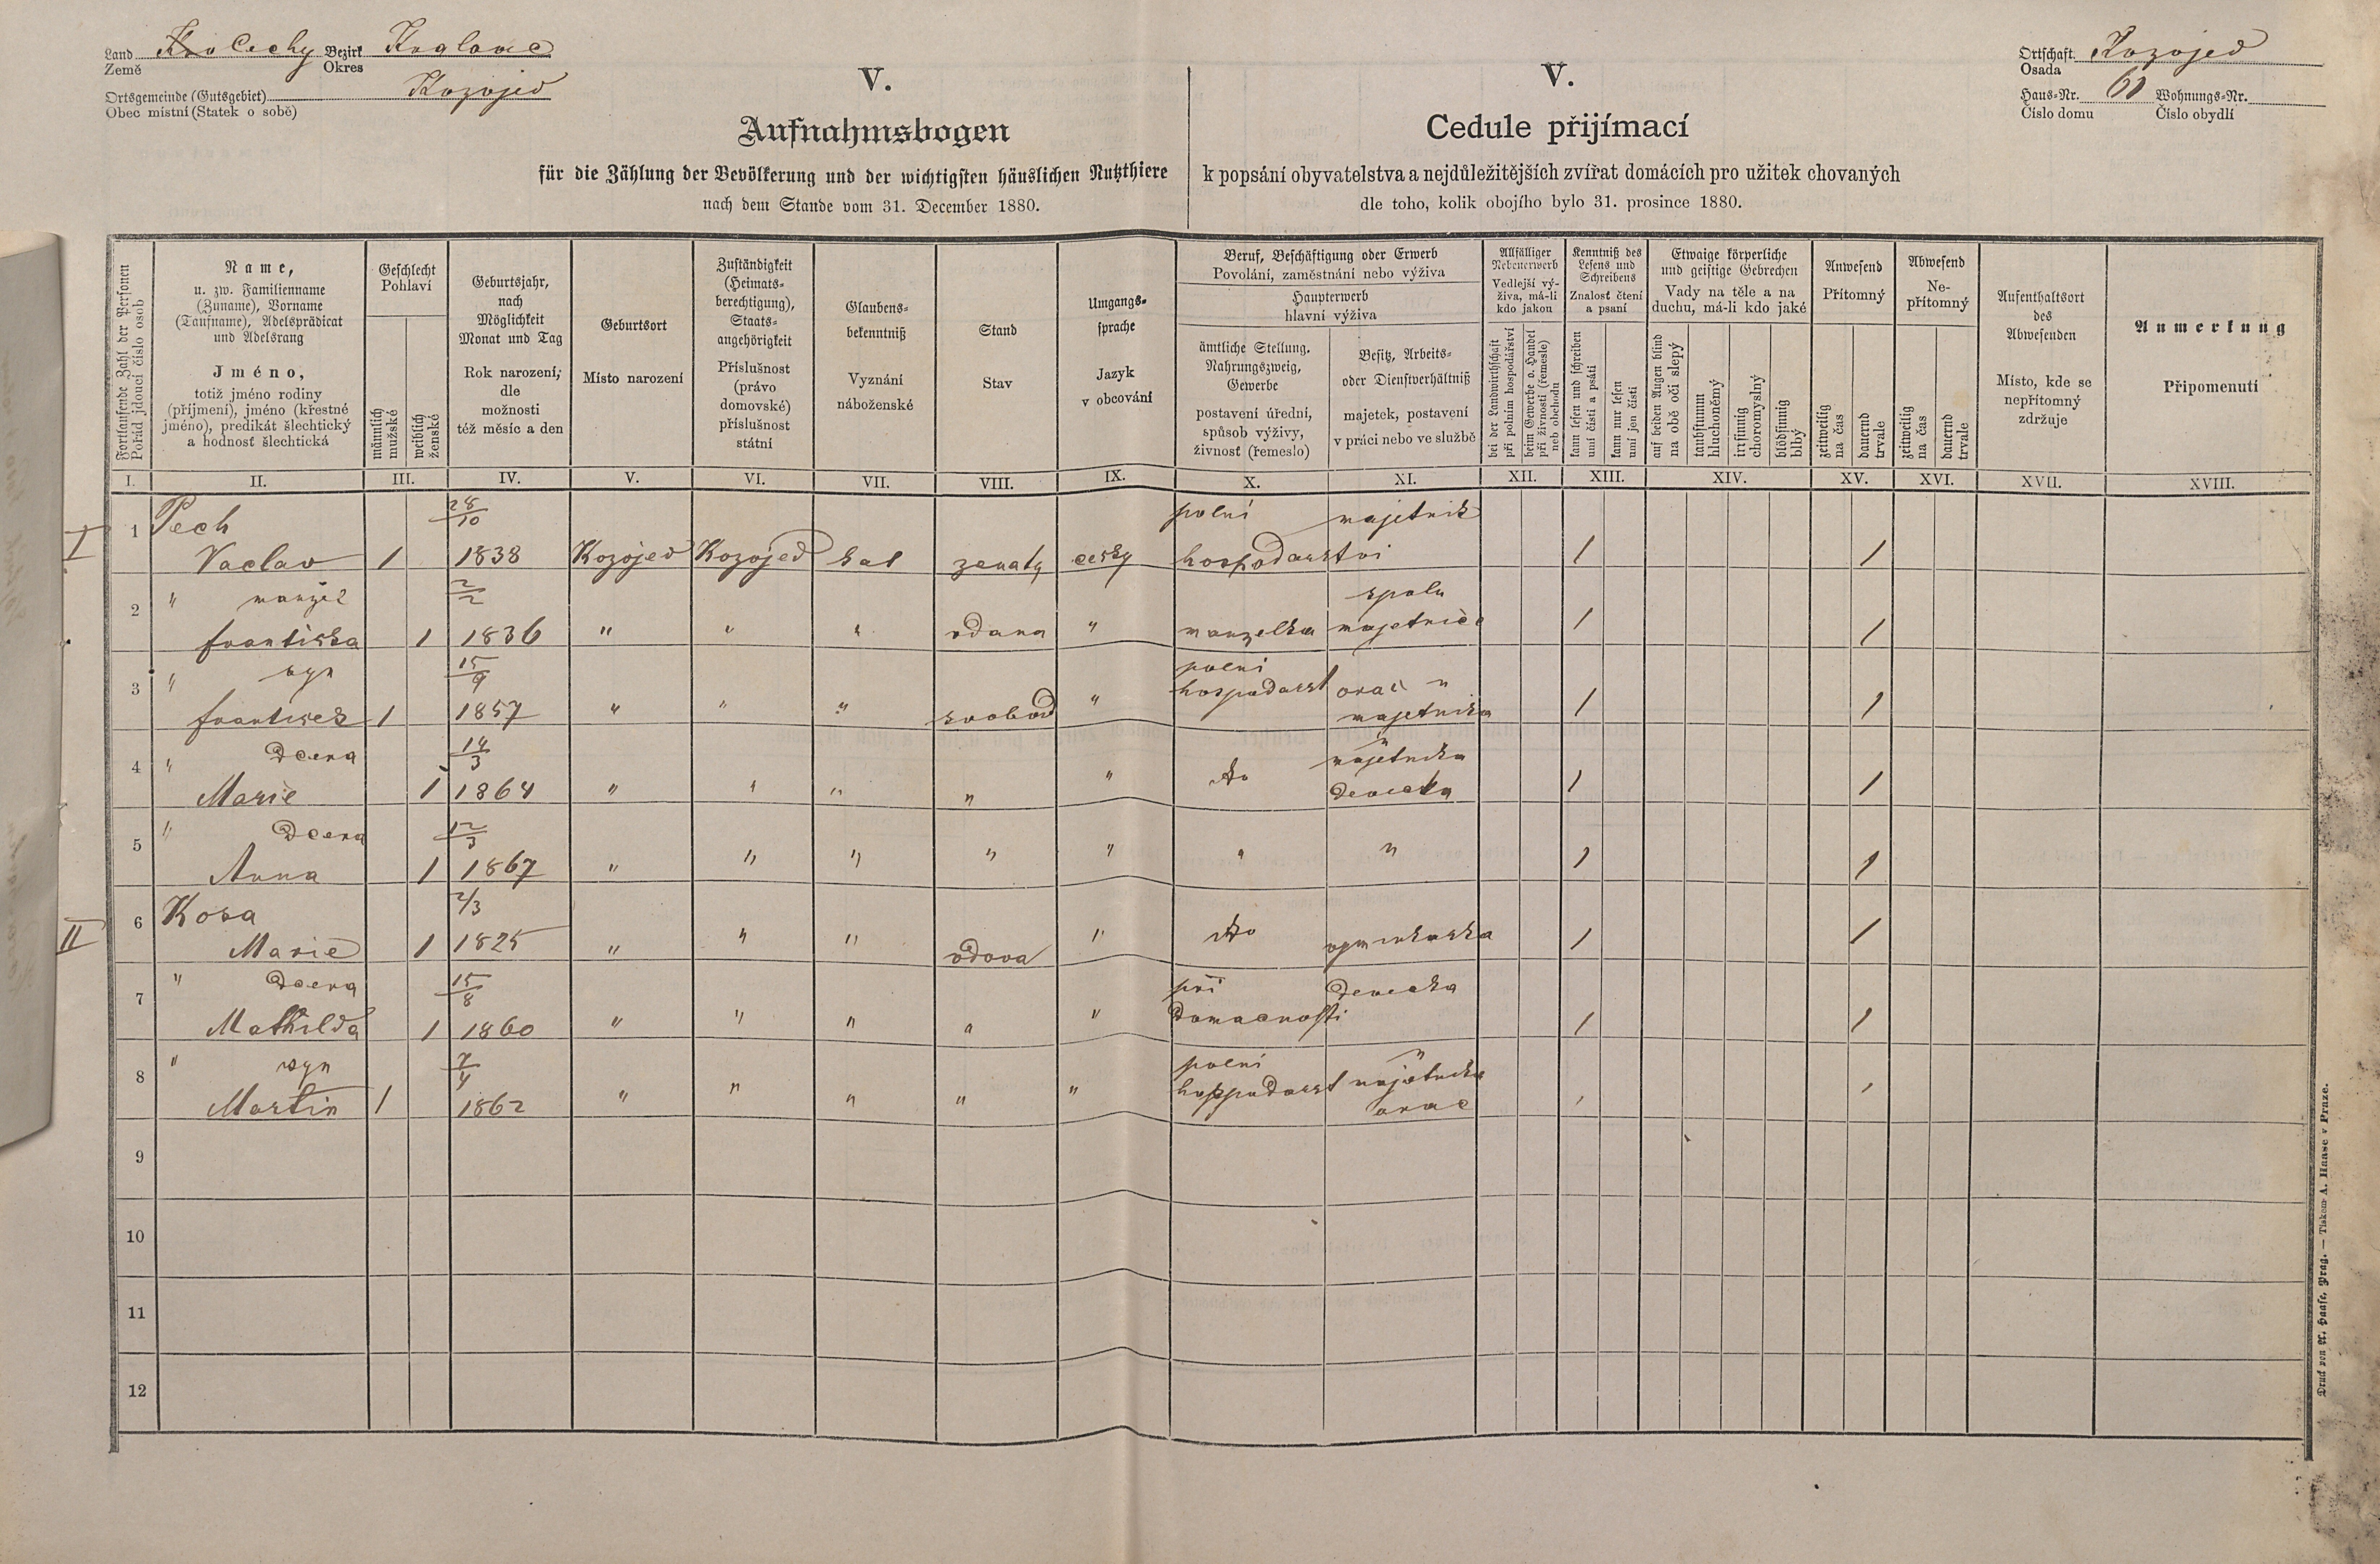 Land Čechy Bezirk Kralovic
Země Okres
Ortsgemeinde (Gutsgebiet) Kozojed
Obec místní (Statek o sobě)
Ortschaft Kozojed
Osada
Haus-Nr. Wohnungs-Nr.
Číslo domu Číslo obydlí
V.
Aufnahmsbogen
für die Zählung der Bevölkerung und der wichtigsten häuslichen Nutzthiere
nach dem Stande vom 31. December 1880.
V.
Cedule přijímací
k popsání obyvatelstva a nejdůležitějších zvířat domácích pro užitek chovaných
dle toho, kolik obojího bylo 31. prosince 1880.
Fortlaufende Zahl der Personen
Pořád jdoucí číslo osob
Name,
u. zw. Familienname
(Zuname), Vorname
(Taufname), Adelsprädicat
und Adelsrang
Jméno,
totiž jméno rodiny
(příjmení), jméno (křestné
jméno), predikát šlechtický
a hodnosť šlechtická
Geschlecht
Pohlaví
männlich
mužské
weiblich
ženské
Geburtsjahr,
nach
Möglichkeit
Monat und Tag
Rok narození,
dle
možnosti
též měsíc a den
Geburtsort
Místo narození
Zuständigkeit
(Heimats-
berechtigung),
Staats-
angehörigkeit
Příslušnost
(právo
domovské)
příslušnost
státní
Glaubens-
bekenntniß
Vyznání
náboženské
Stand
Stav
Umgangs-
sprache
Jazyk
v obcování
Beruf, Beschäftigung oder Erwerb
Povolání, zaměstnání nebo výživa
Haupterwerb
hlavní výživa
ämtliche Stellung,
Nahrungszweig,
Gewerbe
postavení úřední,
spůsob výživy,
živnosť (řemeslo)
Besitz, Arbeits-
oder Dienstverhältniß
majetek, postavení
v práci nebo ve službě
Allfälliger
Nebenerwerb
Vedlejší vý-
živa, má-li
kdo jakou
bei der Landwirthschaft
při polním hospodářství
beim Gewerbe o. Handel
při živnosti (řemesle)
neb obchodu
Kenntniß des
Lesens und
Schreibens
Znalosť čtení
a psaní
kann lesen und schreiben
umí čísti a psáti
kann nur lesen
umí jen čísti
Etwaige körperliche
und geistige Gebrechen
Vady na těle a na
duchu, má-li kdo jaké
auf beiden Augen blind
na obě oči slepý
taubstumm
hluchoněmý
irrsinnig
choromyslný
blödsinnig
blbý
Anwesend
Přítomný
zeitweilig
na čas
dauernd
trvale
Abwesend
Ne-
přítomný
zeitweilig
na čas
dauernd
trvale
Aufenthaltsort
des
Abwesenden
Místo, kde se
nepřítomný
zdržuje
Anmerkung
Připomenutí
I. II. III. IV. V. VI. VII. VIII. IX. X. XI. XII. XIII. XIV. XV. XVI. XVII. XVIII.
I
1 Pech 28/10 polni majetnik
Vaclav 1 1838 Kozojed Kozojed kat zenaty cesky hospodarstvi 1 1
2 " manžel 2/2 spolu
frantiska 1 1836 " " " vdana " manzelka majetnice 1 1
3 " syn 15/9 polni
hospodarst orač "
frantisek 1 1857 " " " svobod " majetnika 1 1
4 " Dcera 14/3 majetnika
Marie 1 1864 " " " " " do devecka 1 1
5 " Dcera 12/3
Anna 1 1867 " " " " " " " 1 1
II
6 Kosa 2/3
Marie 1 1825 " " " vdova " do 1 1
7 " Dcera 15/8 při devecka
Mathilda 1 1860 " " " " " domacnosti 1 1
8 " syn 7/4 polni
hospodarst majetnika
Martin 1 1862 " " " " " orac
9
10
11
12
Druck von A. Haase, Prag. — Tiskem A. Haase v Praze.